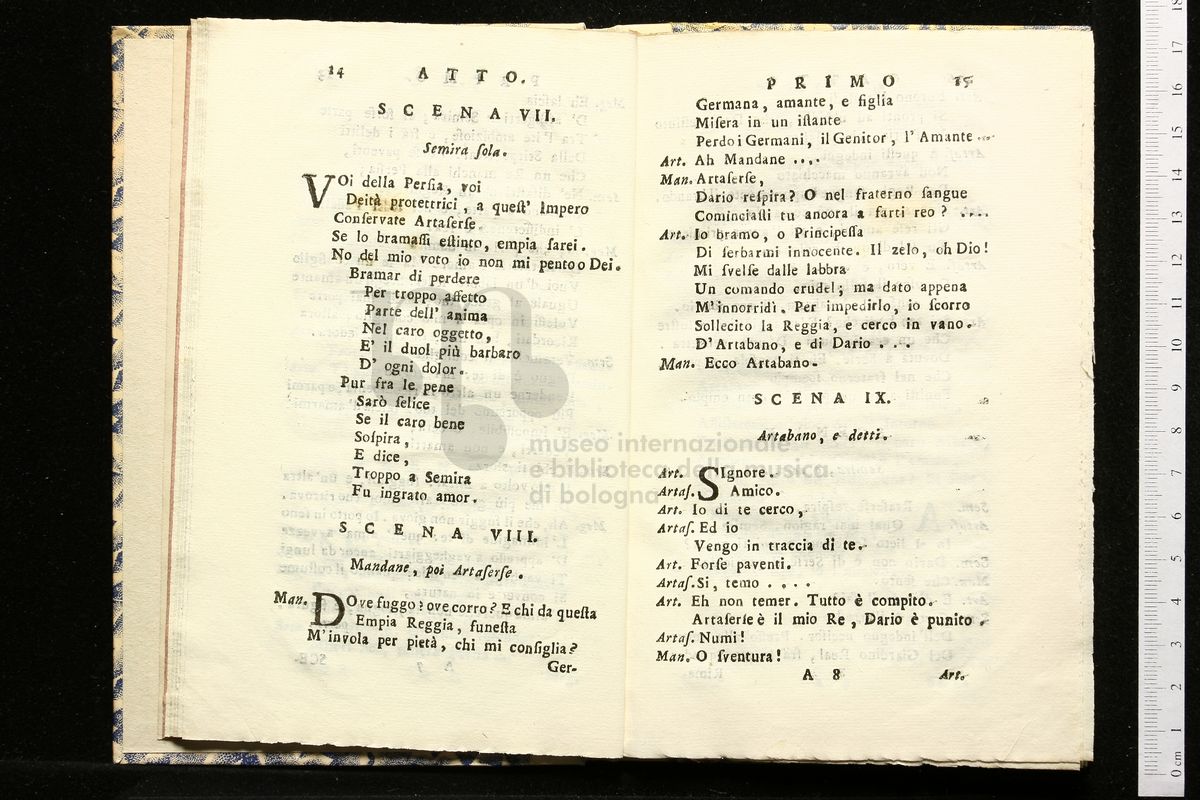 14 ATTO.
SCENA VII.
Semira ſola.
VOi della Perſia, voi
Deità protettrici, a queſt' Impero
Conſervate Artaſerſe.
Se lo bramaſſi eſtinto, empia ſarei.
No del mio voto io non mi pento o Dei.
Bramar di perdere
Per troppo affetto
Parte dell' anima
Nel caro oggetto,
E' il duol più barbaro
D' ogni dolor.
Pur fra le pene
Sarò felice
Se il caro bene
Soſpira,
E dice,
Troppo a Semira
Fu ingrato amor.
SCENA VIII.
Mandane, poi Artaſerſe.
Man. DOve fuggo? ove corro? E chi da queſta
Empia Reggia, funeſta
M'invola per pietà, chi mi conſiglia?
Ger-
PRIMO 15
Germana, amante, e figlia
Miſera in un iſtante
Perdo i Germani, il Genitor, l'Amante ...
Art. Ah Mandane ....
Man. Artaſerſe,
Dario reſpira? O nel fraterno ſangue
Cominciaſti tu ancora a farti reo? ....
Art. Io bramo, o Principeſſa
Di ſerbarmi innocente. Il zelo, oh Dio!
Mi ſvelſe dalle labbra
Un comando crudel; ma dato appena
M'innorridì. Per impedirlo, io ſcorro
Sollecito la Reggia, e cerco in vano.
D'Artabano, e di Dario ...
Man. Ecco Artabano.
SCENA IX.
Artabano, e detti.
Art. SIgnore.
Artaſ. Amico.
Art. Io di te cerco,
Artaſ. Ed io
Vengo in traccia di te.
Art. Forſe paventi.
Artaſ. Si, temo ....
Art. Eh non temer. Tutto è compito.
Artaſerſe è il mio Re, Dario è punito.
Artaſ. Numi!
Man. O ſventura!
A 8 Art.
museo internazionale
e biblioteca della musica
di bologna
0 cm 1 2 3 4 5 6 7 8 9 10 11 12 13 14 15 16 17 18